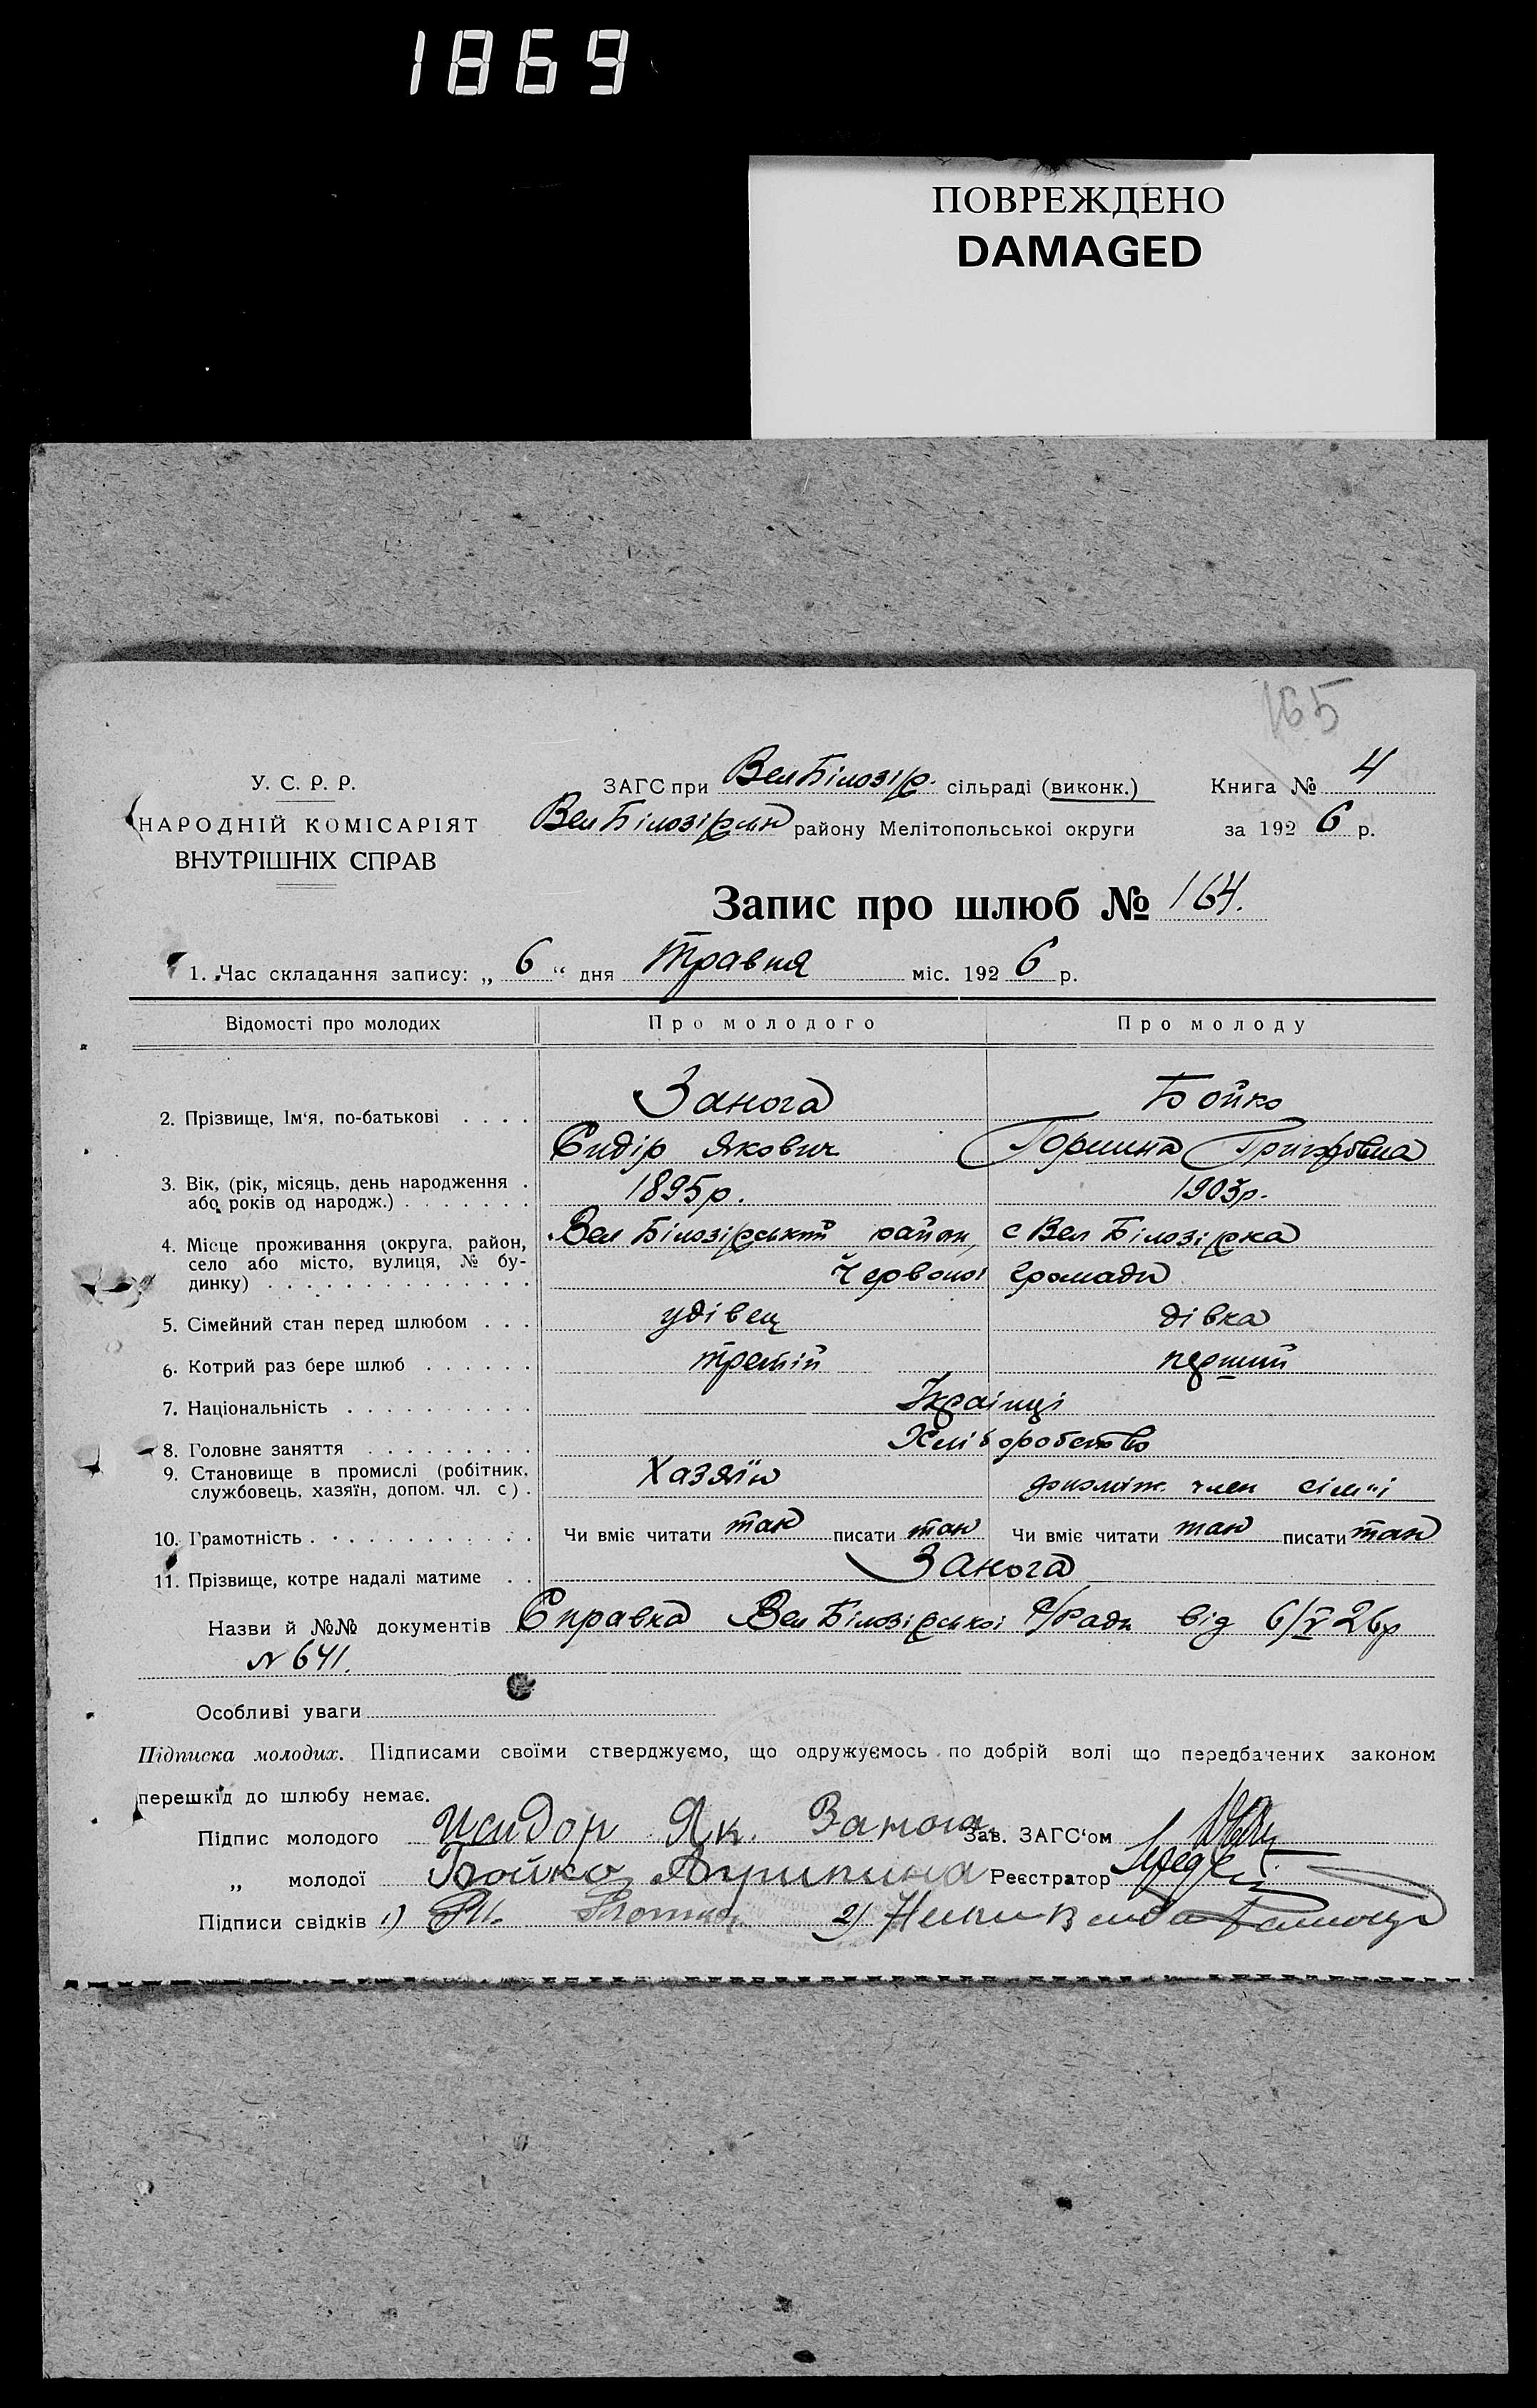 1869
ПОВРЕЖДЕНО
DAMAGED
165
У. С. Р. Р.
НАРОДНІЙ КОМІСАРІЯТ
ВНУТРІШНІХ СПРАВ
ЗАГС при Вел Білозір. сільраді (виконк.) Книга № 4
Вел Білозірськ району Мелітопольськоі округи за 192 6 р.
Запис про шлюб № 164.
1. Час складання запису: „ 6 “ дня Травня міс. 192 6 р.
Відомості про молодих Про молодого Про молоду
2. Прізвище, Ім‘я, по-батькові . . . . Занога Бойко
Сидір Якович Горпина Григоровна
3. Вік, (рік, місяць, день народження .
або років од народж.) . . . . . . . 1895 р. 1903р.
4. Місце проживання (округа, район, Вел Білозірський район, с Вел Білозірка
село або місто, вулиця, № бу-
динку) . . . . . . . . . . . . . . Червоної громади
5. Сімейний стан перед шлюбом . . . удівец дівка
6. Котрий раз бере шлюб . . . . . . третій перший
7. Національність . . . . . . . . . . Українці
8. Головне заняття . . . . . . . . . Хліборобство
9. Становище в промислі (робітник,
службовець, хазяїн, допом. чл. с) . Хазяїн допоміж. член сім"ї
10. Грамотність . . . . . . . . . . . Чи вміє читати так писати так Чи вміє читати так писати так
11. Прізвище, котре надалі матиме . . Занога
Назви й №№ документів Справка Вел Білозірської с/Ради від 6/V 26р
N 641.
Особливі уваги
Підписка молодих. Підписами своїми стверджуємо, що одружуємось по добрій волі що передбачених законом
перешкід до шлюбу немає.
Підпис молодого Исидор Як. Занога Зав. ЗАГС‘ом
„ молодої Бойко Агрипина Реєстратор
Підписи свідків 1) 2)